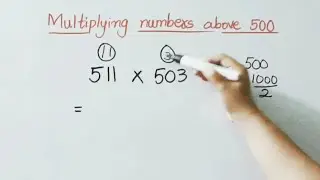 Multiplying numbers above 500
11 3
511 x 503 500
1000
=
2